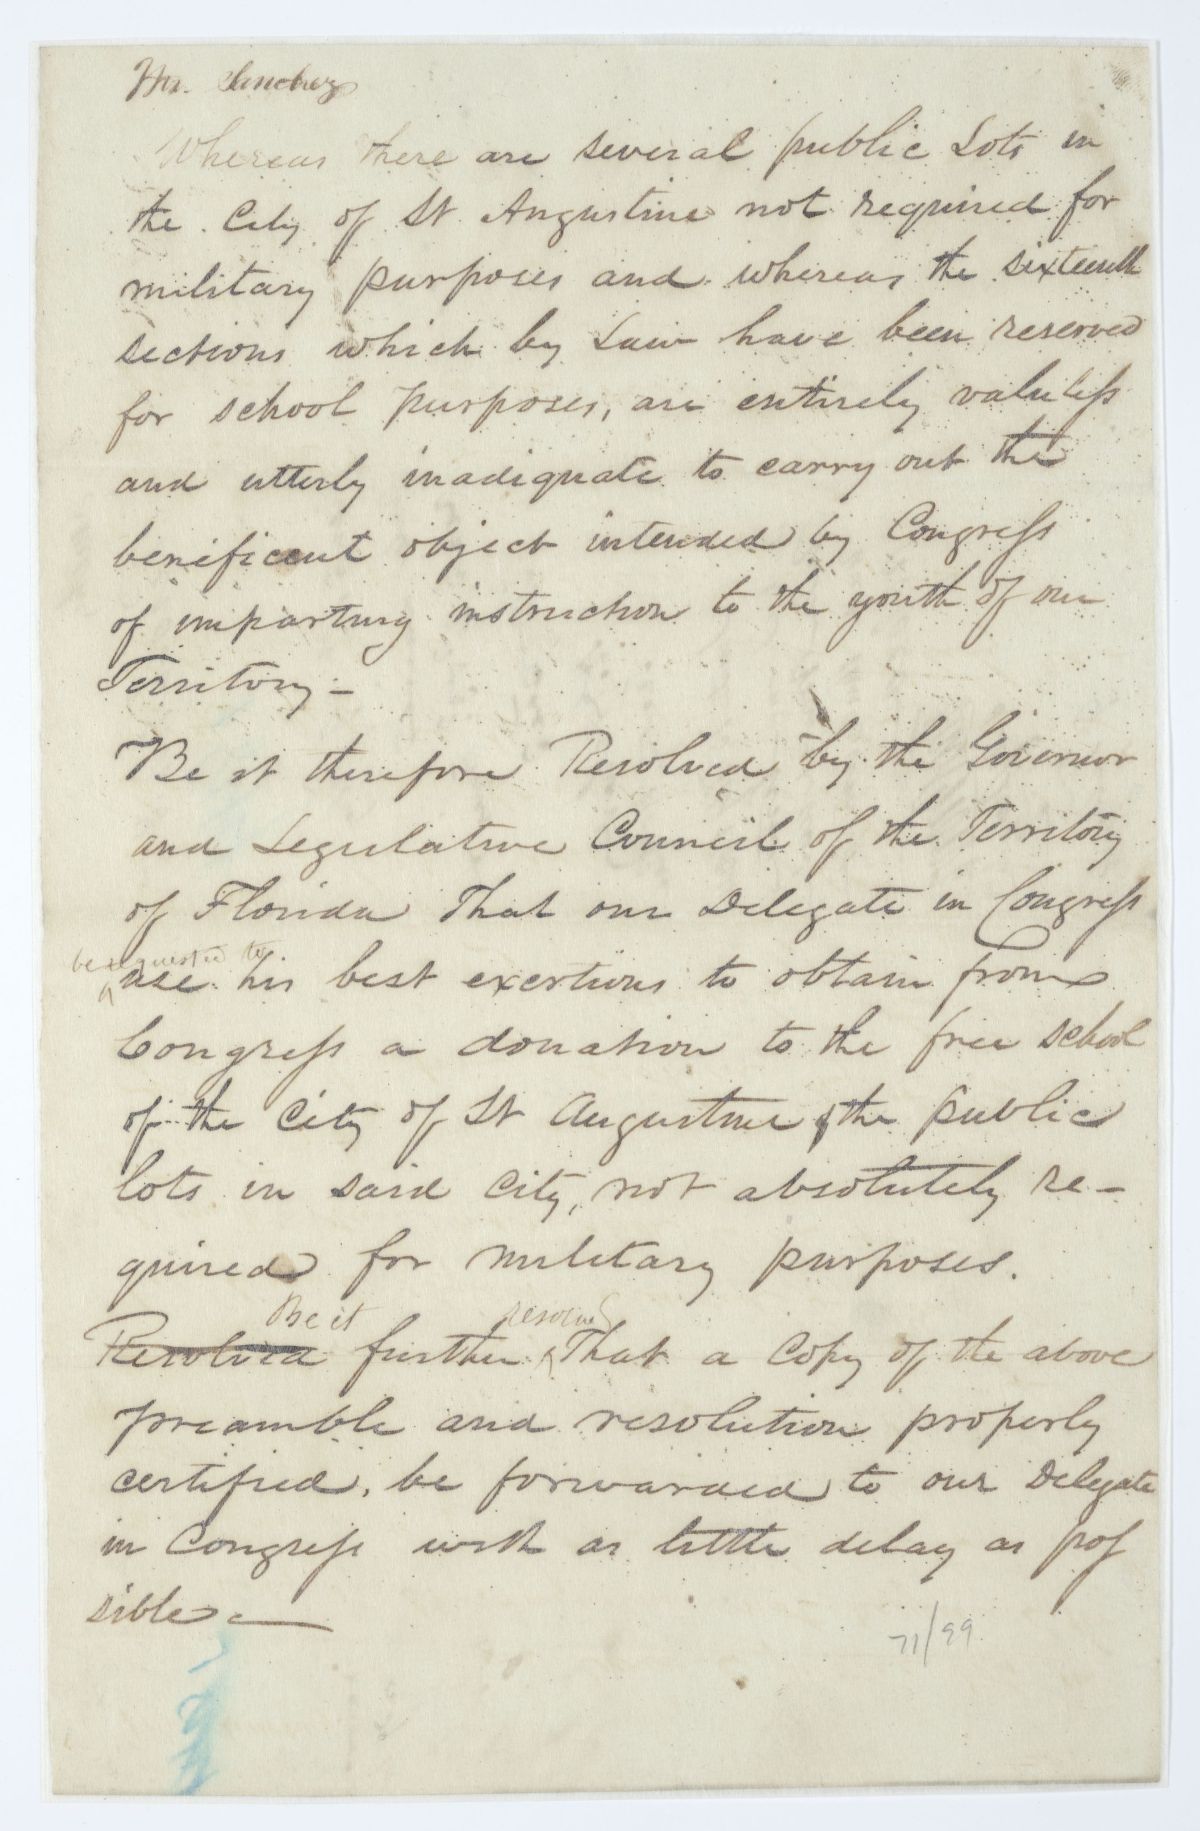 Mr. Sanchez
Whereas there are several public Lots in
the City of St Augustine not required for
military purposes and whereas the sixteenth
sections which by Law have been reserved
for school purposes, are entirely valueless
and utterly inadequate to carry out the
beneficent object intended by Congress
of imparting instruction to the youth of our
Territory—
Be it therefore Resolved by the Governor
and Legislative Council of the Territory
of Florida That our Delegate in Congress
be requested to
use his best exertions to obtain from
Congress a donation to the free school
of the City of St Augustine, the public
lots in said City, not absolutely re-
quired for military purposes.
Be it resolved
Resolved further That a Copy of the above
preamble and resolution properly
certified, be forwarded to our Delegate
in Congress with as little delay as pos
sible—
71/99